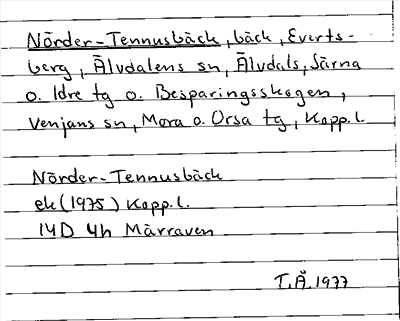 Nörder-Tennusbäck, bäck, Everts-
berg, Älvdalens sn, Älvdals, Särna
o. Idre tg o. Besparingsskogen,
Venjans sn, Mora o. Orsa tg, Kopp.l.
Nörder-Tennusbäck
ek (1975) Kopp.l.
14D 4h Märraven
T.Å.1977